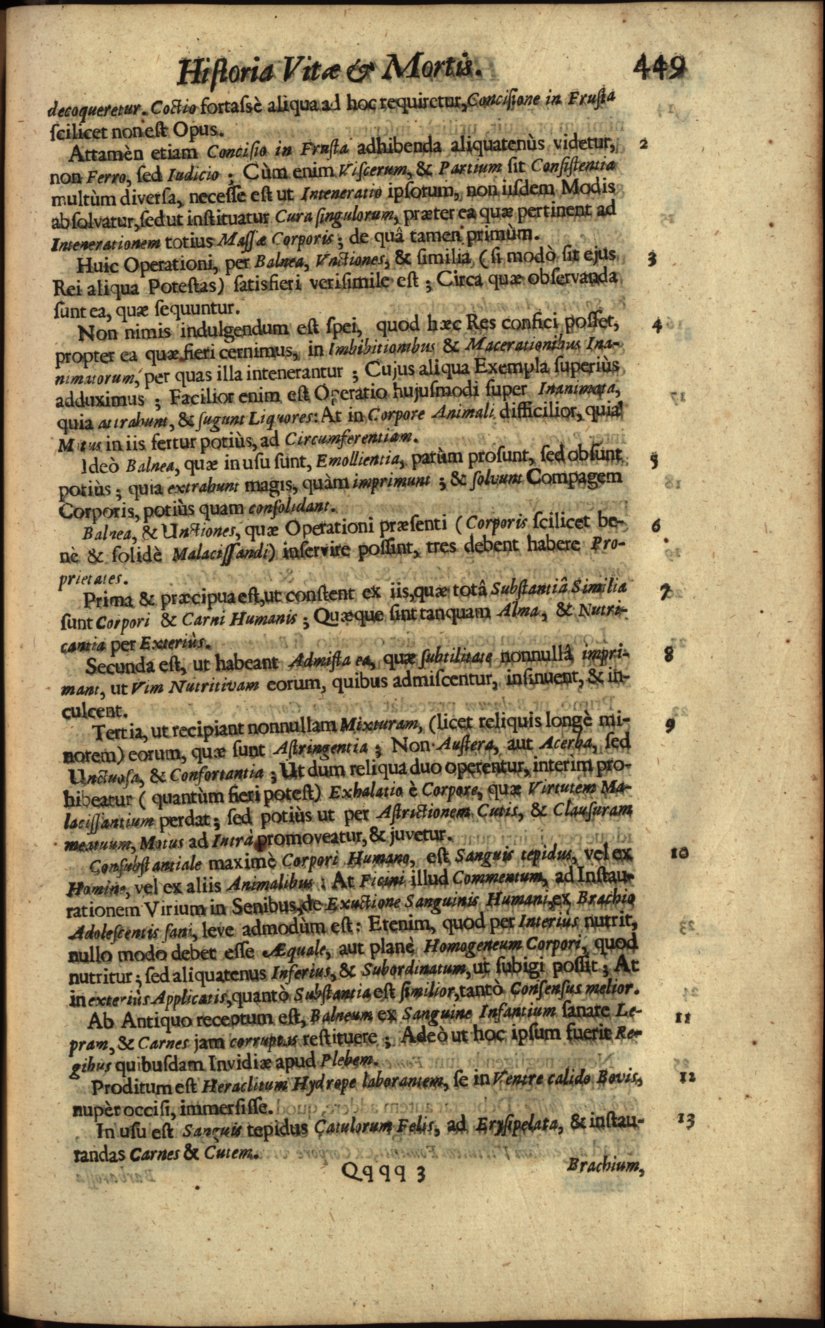 Historia Vitæ & Mortis. 449
decoqueretur. Coctio fortassè aliqua ad hoc requiretur, Concisione in Frusta
scilicet non est Opus.
Attamèn etiam Concisio in Frusta adhibenda aliquatenùs videtur, 2
non Ferro, sed Iudicio ; Cùm enim Viscerum, & Partium sit Consistentia
multùm diversa, necesse est ut Inteneratio ipsorum, non iisdem Modis
absolvatur, sed ut instituatur Cura singulorum, præter ea quæ pertinent ad
Intenerationem totius Massæ Corporis ; de quâ tamen primùm.
Huic Operationi, per Balnea, Vnctiones, & similia, (si modò sit ejus 3
Rei aliqua Potestas) satisfieri verisimile est ; Circa quæ observanda
sunt ea, quæ sequuntur.
Non nimis indulgendum est spei, quod hæc Res confici posset, 4
propter ea quæ fieri cernimus, in Imbibitionibus & Macerationibus Ina-
nimatorum, per quas illa intenerantur ; Cujus aliqua Exempla superiùs
adduximus ; Facilior enim est Operatio hujusmodi super Inanimata,
quia attrahunt, & sugunt Liquores : At in Corpore Animali difficilior, quia
Motus in iis fertur potiùs, ad Circumferentiam.
Ideò Balnea, quæ in usu sunt, Emollientia, parùm prosunt, sed obsunt 5
potiùs ; quia extrahunt magis, quàm imprimunt ; & solvunt Compagem
Corporis, potiùs quam consolidant.
Balnea, & Unctiones, quæ Operationi præsenti (Corporis scilicet be- 6
nè & solidè Malacissandi) inservire possint, tres debent habere Pro-
prietates.
Prima & præcipua est, ut constent ex iis, quæ totâ Substantiâ Similia 7
sunt Corpori & Carni Humanis ; Quæque sint tanquam Alma, & Nutri-
cantia per Exteriùs.
Secunda est, ut habeant Admista ea, quæ subtilitate nonnullâ impri- 8
mant, ut Vim Nutritivam eorum, quibus admiscentur, insinuent, & in-
culcent.
Tertia, ut recipiant nonnullam Mixturam, (licet reliquis longè mi- 9
norem) eorum, quæ sunt Astringentia ; Non Austera, aut Acerba, sed
Unctuosa, & Confortantia ; Ut dum reliqua duo operentur, interim pro-
hibeatur (quantùm fieri potest) Exhalatio è Corpore, quæ Virtutem Ma-
lacissantium perdat ; sed potiùs ut per Astrictionem Cutis, & Clausuram
meatuum, Motus ad Intrà promoveatur, & juvetur.
Consubstantiale maximè Corpori Humano, est Sanguis tepidus, vel ex 10
Homine, vel ex aliis Animalibus : At Ficini illud Commentum, ad Instau-
rationem Virium in Senibus, de Exuctione Sanguinis Humani, ex Brachio
Adolescentis sani, leve admodùm est : Etenim, quod per Interiùs nutrit,
nullo modo debet esse Æquale, aut planè Homogeneum Corpori, quod
nutritur ; sed aliquatenus Inferius, & Subordinatum, ut subigi possit ; At
in exteriùs Applicatis, quantò Substantia est similior, tantò Consensus melior.
Ab Antiquo receptum est, Balneum ex Sanguine Infantium sanare Le- 11
pram, & Carnes jam corruptas restituere ; Adeò ut hoc ipsum fuerit Re-
gibus quibusdam Invidiæ apud Plebem.
Proditum est Heraclitum Hydrope laborantem, se in Ventre calido Bovis, 12
nupèr occisi, immersisse.
In usu est Sanguis tepidus Catulorum Felis, ad Erysipelata, & instau- 13
randas Carnes & Cutem.
Qqqq 3 Brachium,